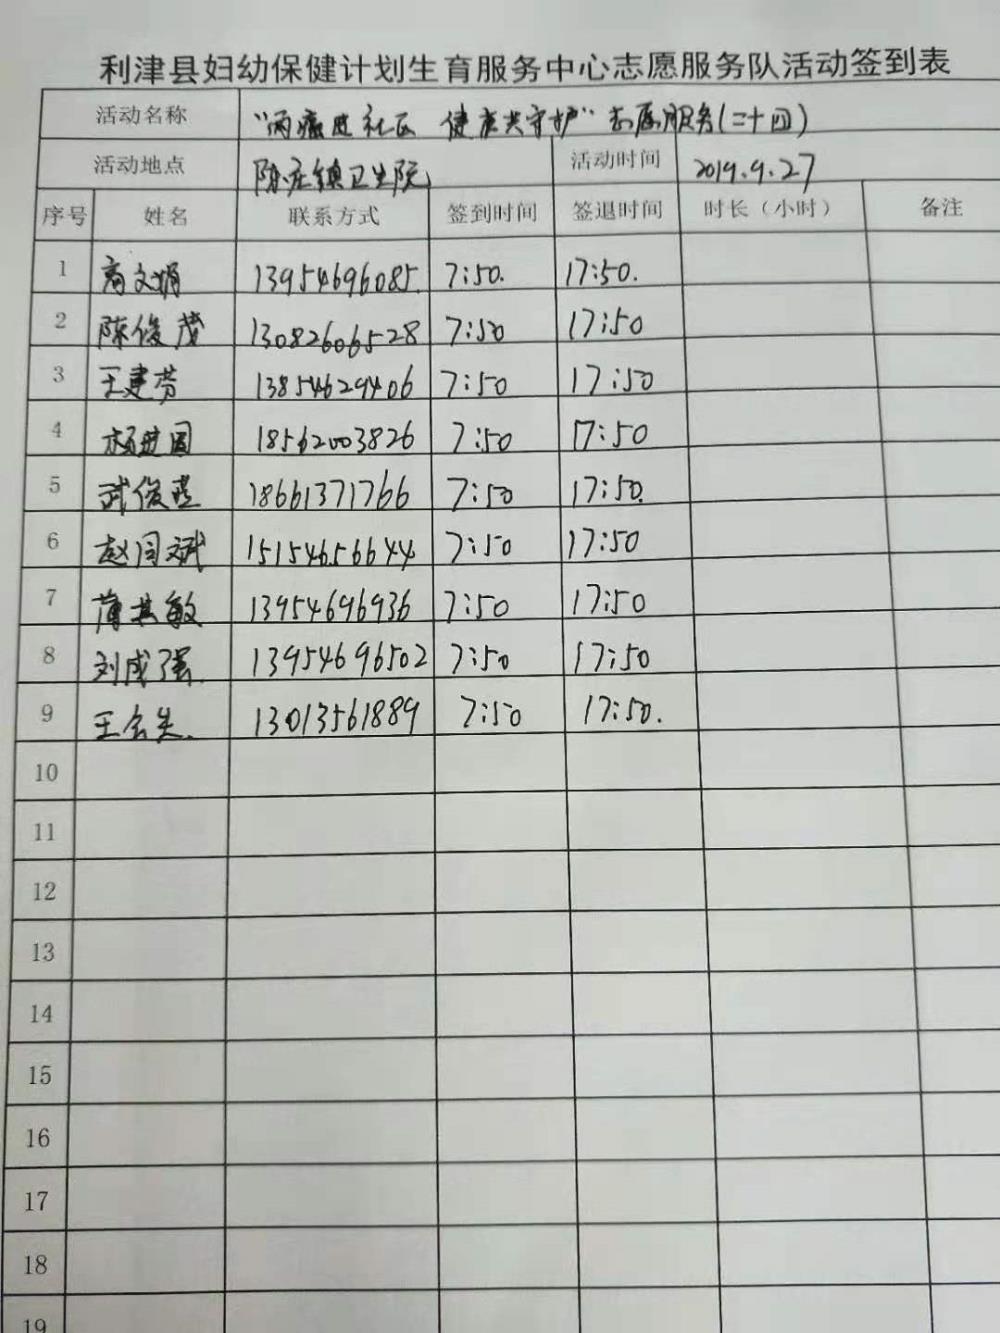 利津县妇幼保健计划生育服务中心志愿服务队活动签到表
活动名称 “两癌进社区 健康共守护”志愿服务(二十四)
活动地点 陈庄镇卫生院 活动时间 2019.9.27
序号 姓名 联系方式 签到时间 签退时间 时长（小时） 备注
1 商文娟 13954696085. 7:50. 17:50.
2 陈俊茂 13082606528 7:50 17:50
3 王建芳 13854629406 7:50 17:50
4 杨进国 18562003826 7:50 17:50
5 武俊燕 18661371766 7:50 17:50.
6 赵闫斌 15154656644 7:50 17:50
7 薄其敏 13954696936 7:50 17:50
8 刘成强. 13954696502 7:50 17:50
9 王 13013561889 7:50 17:50.
10
11
12
13
14
15
16
17
18
19